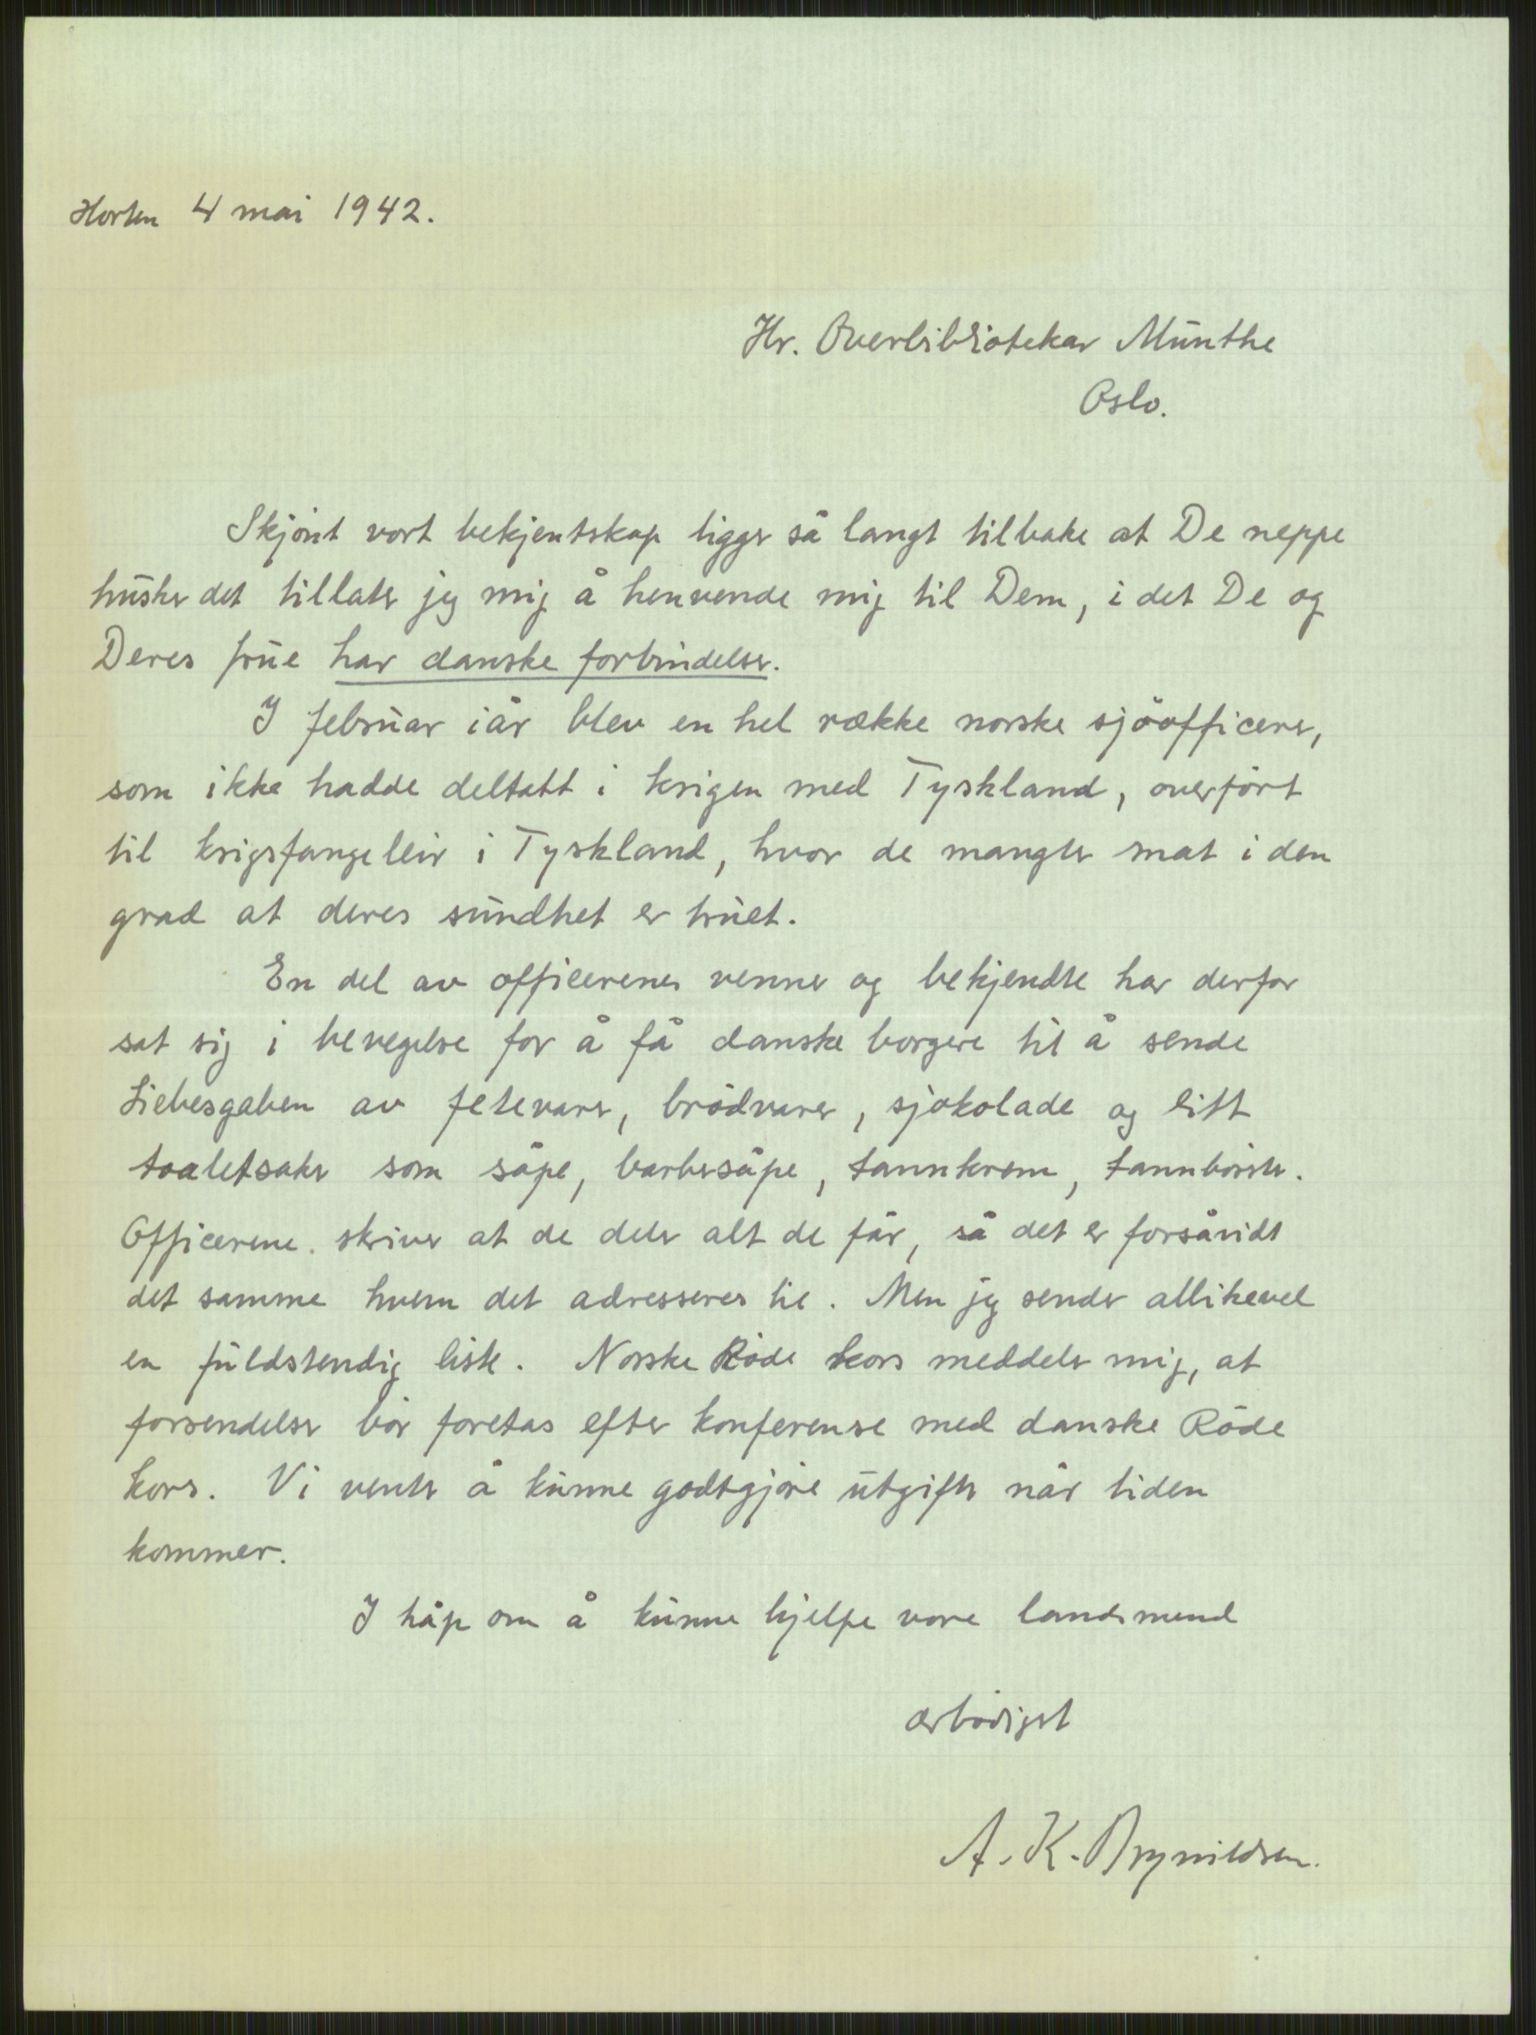 Horten 4 mai 1942.
Hr. Overbibliotekar Munthe
Oslo.
Skjönt vort bekjentskap ligger så langt tilbake at De neppe
husker det tillater jeg mig å henvende mig til Dem, i det De og
Deres frue har danske forbindelser.
I februar iår blev en hel række norske sjöofficerer,
som ikke hadde deltatt i krigen med Tyskland, overfört
til krigsfangeleir i Tyskland, hvor de mangler mat i den
grad at deres sundhet er truet.
En del av officerenes venner og bekjendte har derfor
sat sig i bevegelse for å få danske borgere til å sende
Liebesgaben av fetevarer, brödvarer, sjokolade og litt
toaletsaker som såpe, barbersåpe, tannkrem, tannbörster.
Officerene skriver at de deler alt de får, så det er forsåvidt
det samme hvem det adresseres til. Men jeg sender allikevel
en fuldstendig liste. Norske Röde kors meddeler mig, at
forsendelser bör foretas efter konferense med danske Röde
kors. Vi venter å kunne godtgjöre utgifter når tiden
kommer.
I håp om å kunne hjelpe vore landsmend
ærbödigst
A. K. Brynildsen.